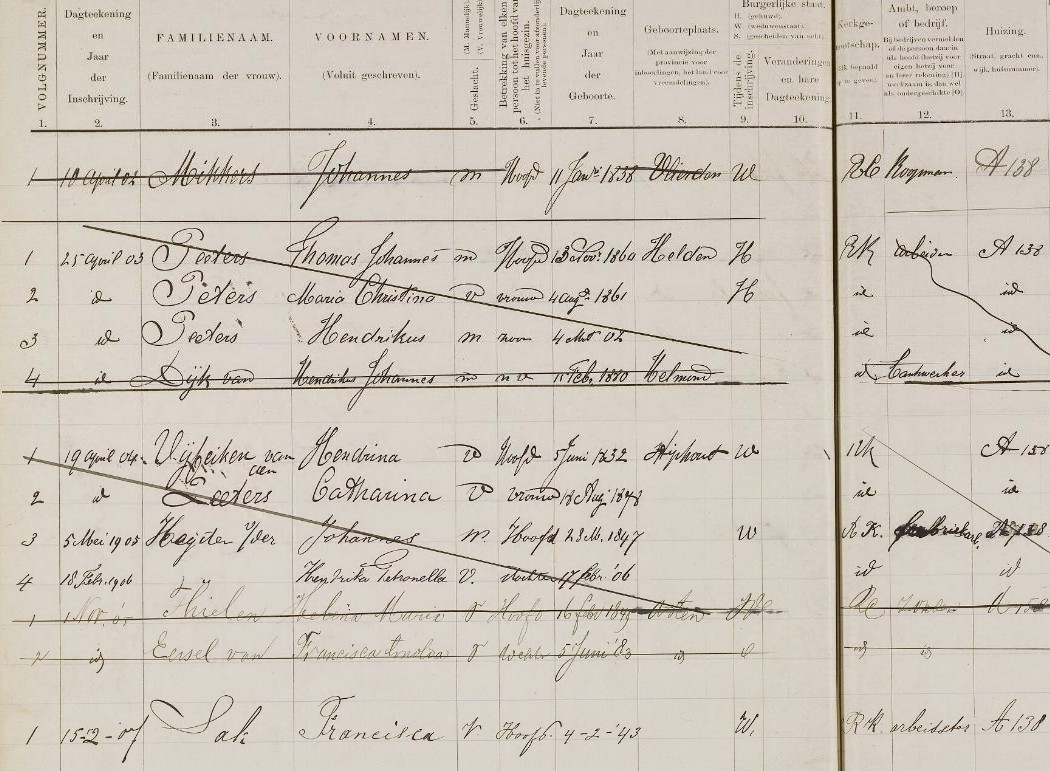 VOLGNUMMER.
Dagteekening
en
Jaar
der
Inschrijving.
FAMILIENAAM.
(Familienaam der vrouw).
VOORNAMEN.
(Voluit geschreven).
Geslacht.
(M. Mannelijk).
(V. Vrouwelijk).
Betrekking van elken
persoon tot het hoofd van
het huisgezin.
Dagteekening
en
Jaar
der
Geboorte.
Geboorteplaats.
(Met aanwijzing der
provincie voor
inboorlingen, het land voor
vreemdelingen).
Burgerlijke staat.
H. (gehuwd).
W. (weduwenstaat).
S. (gescheiden van echt).
Tijdens de
inschrijving.
Veranderingen
en hare
Dagteekening
Kerkge-
nootschap.
Ambt, beroep
of bedrijf.
Huizing.
(Straat, gracht enz.,
wijk, huisnummer).
1. 2. 3. 4. 5. 6. 7. 8. 9. 10. 11. 12. 13.
1 10 April 02 Mikkers Johannes m Hoofd 11 Jan 1838 Vlierden W RC Koopman A 138
1 25 April 03 Peeters Thomas Johannes m Hoofd 13 Nov. 1860 Helden H RK arbeider A 138
2 id Peters Maria Christina v vrouw 4 Aug. 1861 H id id
3 id Peeters Hendrikus m zoon 4 02 id id
4 id Dijk van Hendrikus Johannes m 11 Febr. 1880 Helmond id id
1 19 April 04 van den Hendrina v Hoofd 5 Juni 1832 W RK A 138
2 id Peeters Catharina v vrouw 18 Aug. 1878 id id
3 5 Mei 1905 Heijden v/der Johannes m. Hoofd 23 M. 1847 W R.K. A 138
4 18 Febr. 1906 Hendrika Petronella v. dochter 17 febr '06 id id
1 1 Nov. 05 Thielen Helina Maria v Hoofd 16 feb Asten
2 id Eersel van Francisca v 5 Juni '83 id id id
1 15-2-07 Sak Francisca v Hoofd. 4-2-'43 W. R.K. arbeidster A 138